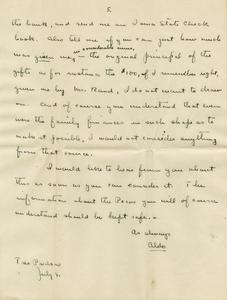 5
the bank, and send me an Iowa State check
book. Also tell me if you can just how much
was given my in immediate name,
the original principal of the
gifts as for instance the $100, if I remember right,
given me by Mr. Rand, I do not count to clear
on. And of course you understand that even
were the family finances in such shape as to
make it possible, I would not consider anything
from that source.
I would like to hear from you about
this as soon as you can consider it. The
information about the Pecos you will of course
understand should be kept safe.
As always
Aldo
Tres Piedras
July 8.